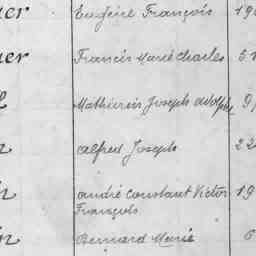 uer Eugène François 19
uer Francis Marie Charles 5
Mathurin Joseph Adolphe 9
n Alfred Joseph 22
in André Constant Victor 19
François
in Bernard Marie 6